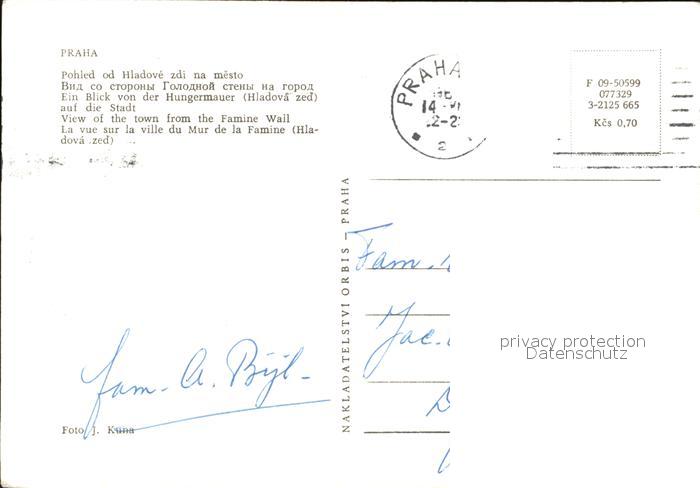 PRAHA
Pohled od Hladové zdi na město
Вид со стороны Голодной стены на город
Ein Blick von der Hungermauer (Hladová zeď)
auf die Stadt
View of the town from the Famine Wall
La vue sur la ville du Mur de la Famine (Hla-
dová zeď)
fam. A. Bijl-
Foto J. Kuna
NAKLADATELSTVÍ ORBIS — PRAHA
PRAHA
14
2
F 09-50599
077329
3-2125 665
Kčs 0,70
Fam.
Jac.
privacy protection
Datenschutz